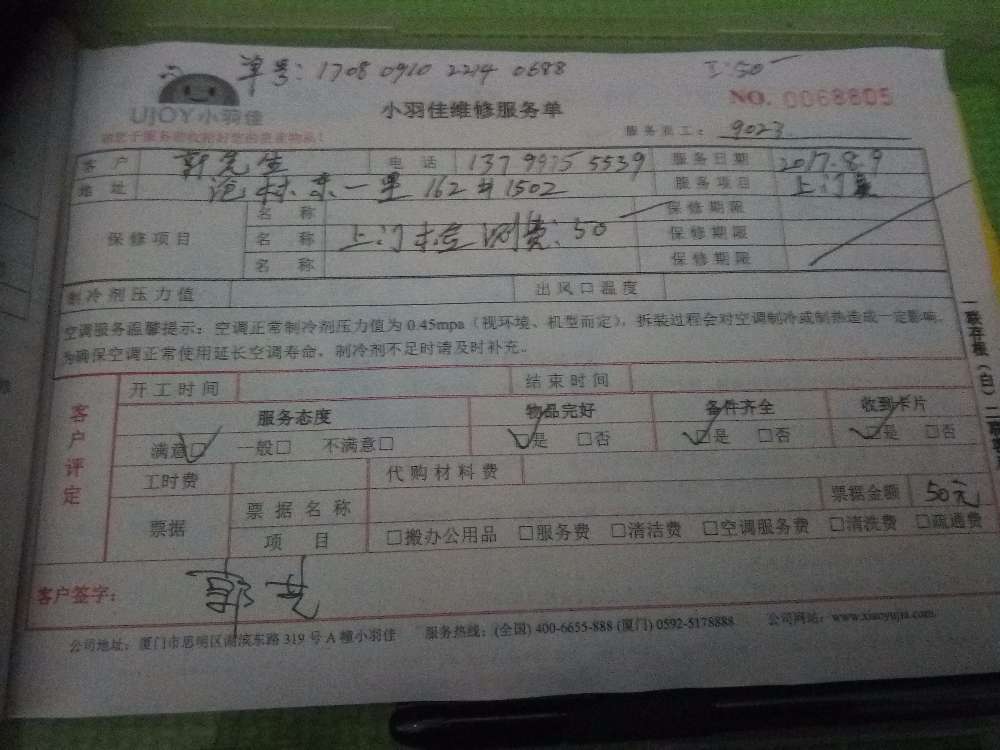 单号：1708 0910 2214 0688
工:50
UJOY小羽佳
小羽佳维修服务单
NO. 0068805
服务派工： 9023
客户 郭先生 电话 137 9975 5539 服务日期 2017.8.9
地址 162 # 1502 服务项目 上门
保修项目 名称 保修期限
名称 上门检测费:50 保修期限
名称 保修期限
制冷剂压力值 出风口温度
空调服务温馨提示：空调正常制冷剂压力值为0.45mpa（视环境、机型而定），拆装过程会对空调制冷或制热造成一定影响，
为确保空调正常使用延长空调寿命，制冷剂不足时请及时补充。
客户评定
开工时间 结束时间
服务态度 物品完好 备件齐全 收到卡片
满意□ 一般□ 不满意□ □是 □否 □是 □否 □是 □否
工时费 代购材料费
票据 票据名称 票据金额 50元
项目 □搬办公用品 □服务费 □清洁费 □空调服务费 □清洗费 □疏通费
客户签字：
公司地址：厦门市思明区湖滨东路319号A幢小羽佳 服务热线：(全国) 400-6655-888 (厦门) 0592-5178888 公司网站：www.xiaoyujia.com
一联存根（白）二联